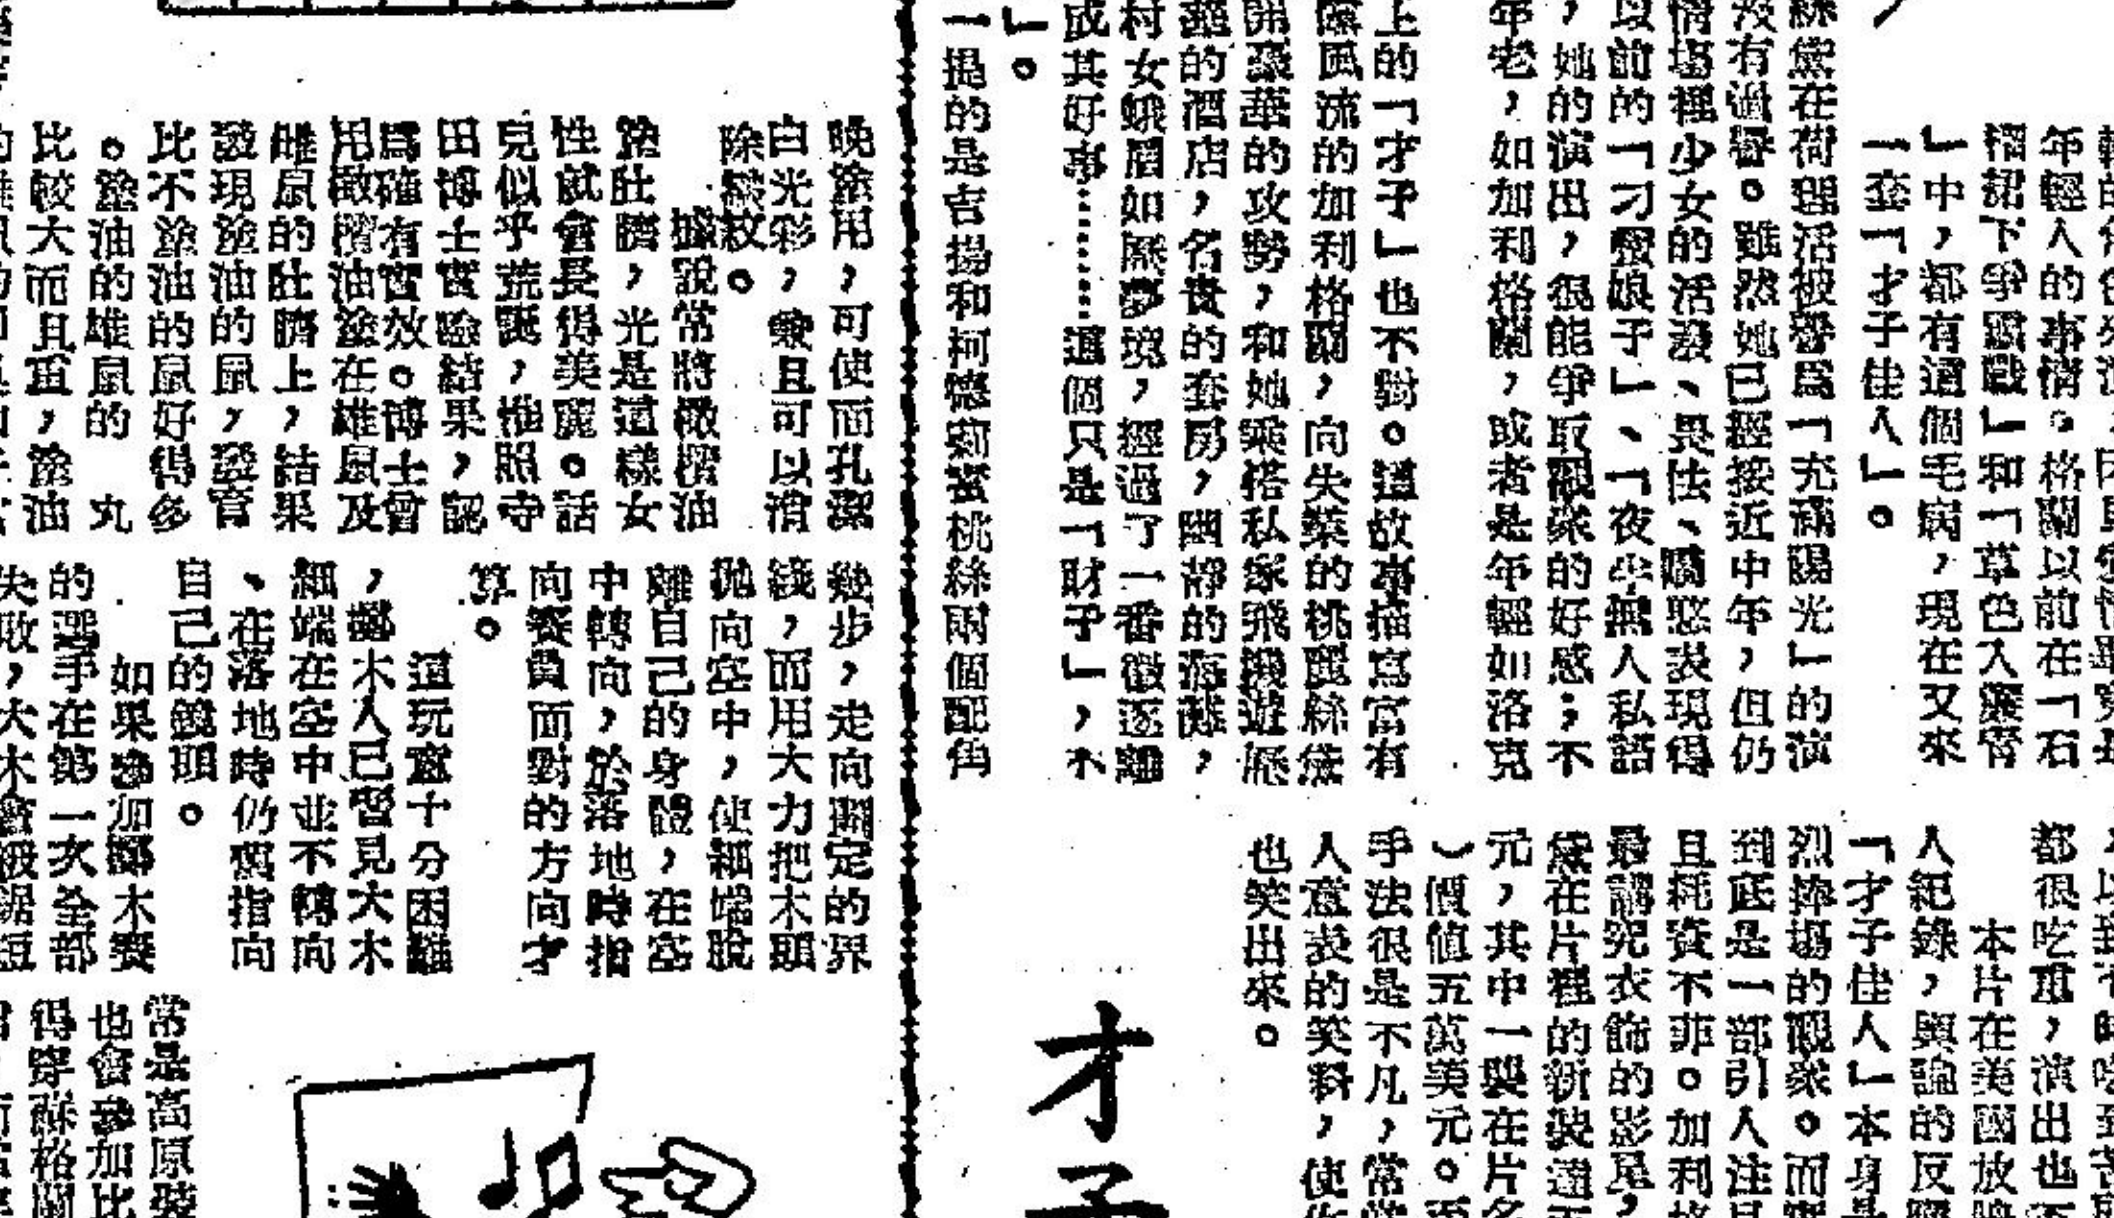 年輕人的事情。格蘭以前在「石
榴裙下爭霸戰」和「草色入簾青
」中，都有這個毛病，現在又來
一套「才子佳人」。
絲黛在荷理活被譽爲「充滿陽光」的演
有過譽。雖然她已經接近中年，但仍
情場裡少女的活潑、畏怯、嬌憨表現得
以前的「刁蠻娘子」、「夜半無人私語
，她的演出，很能爭取觀衆的好感；不
年老，如加利格蘭，或者是年輕如洛克
上的「才子」也不對。這故事描寫富有
風流的加利格蘭，向失業的桃麗絲黛
開豪華的攻勢，和她乘搭私家飛機遊歷
的酒店，名貴的套房，幽靜的海灘，
村女蛾眉如歷夢境，經過了一番徵逐離
或其好事………這個只是「財子」，不
」。
一提的是吉揚和柯德莉蜜桃絲兩個配角
都很吃重，演出也
本片在美國放映
人紀錄，輿論的反
「才子佳人」本身是
烈捧場的觀衆。而
到底是一部引人注目
且耗資不菲。加利格
最講究衣飾的影星，
黛在片裡的新裝
元，其中一襲在片
）價值五萬美元。
手法很是不凡，常常
人意表的笑料，使
也笑出來。
才子
晚塗用，可使面孔潔
白光彩，兼且可以消
除皺紋。
據說常將橄欖油
塗肚臍，光是這樣女
性就會長得美麗。話
見似乎荒誕，惟照寺
田博士實驗結果，認
爲確有實效。博士曾
用橄欖油塗在雄鼠及
雌鼠的肚臍上，結果
發現塗油的鼠，發育
比不塗油的鼠好得多
。塗油的雄鼠的　丸
比較大而且重，塗油
幾步，走向劃定的界
綫，而用大力把木頭
拋向空中，使細端脫
離自己的身體，在空
中轉向，於落地時指
向賽員面對的方向才
算。
這玩意十分困難
，擲木人已習見大木
細端在空中並不轉向
、在落地時仍舊指向
自己的鏡頭。
如果參加擲木賽
的選手在第一次全部
失敗，大木會被鋸短
常是高原裝
也會參加比
得穿蘇格蘭